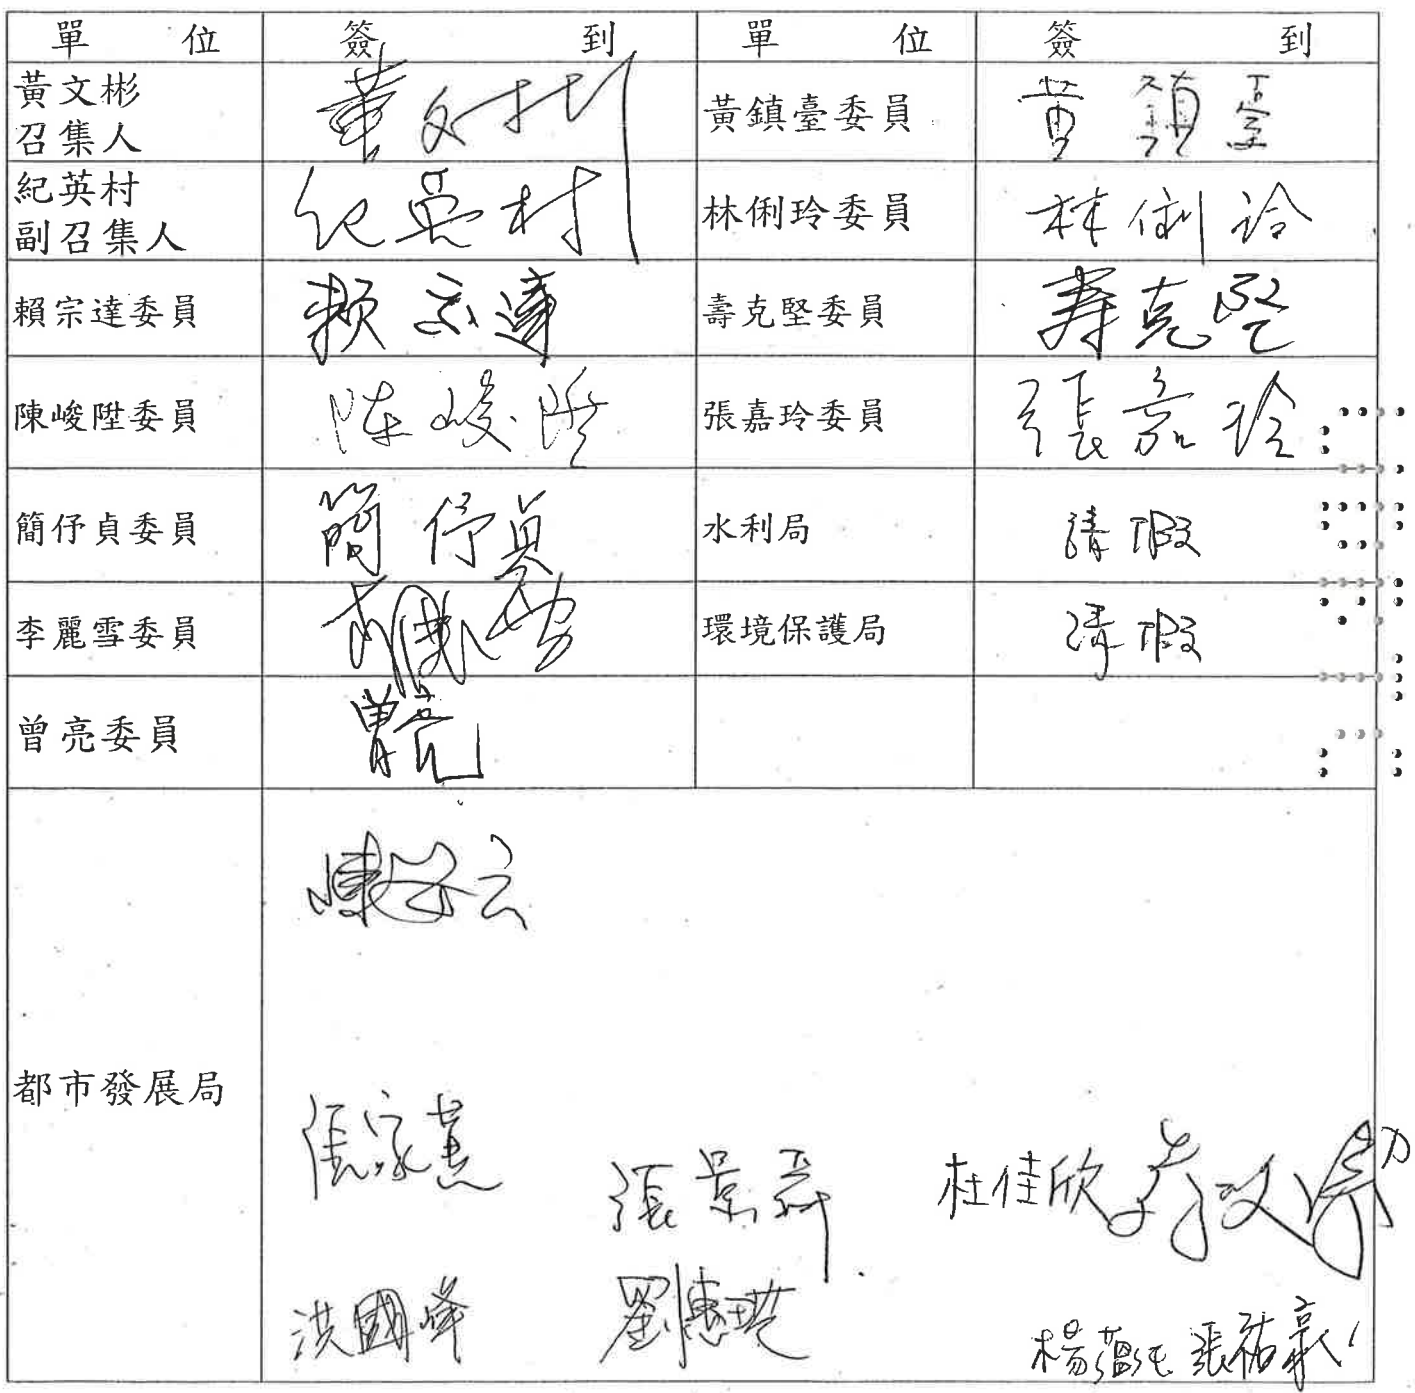 單 位 簽 到 單 位 簽 到
黃文彬
召集人
黃文彬
黃鎮臺委員
黃鎮臺
紀英村
副召集人
紀英村
林俐玲委員
林俐玲
賴宗達委員
賴宗達
壽克堅委員
壽克堅
陳峻陞委員
陳峻陞
張嘉玲委員
張嘉玲
簡伃貞委員
簡伃貞
水利局
請假
李麗雪委員
環境保護局
請假
曾亮委員
曾亮
都市發展局
張景
杜佳欣
洪國峰
劉惠
楊 張祐豪